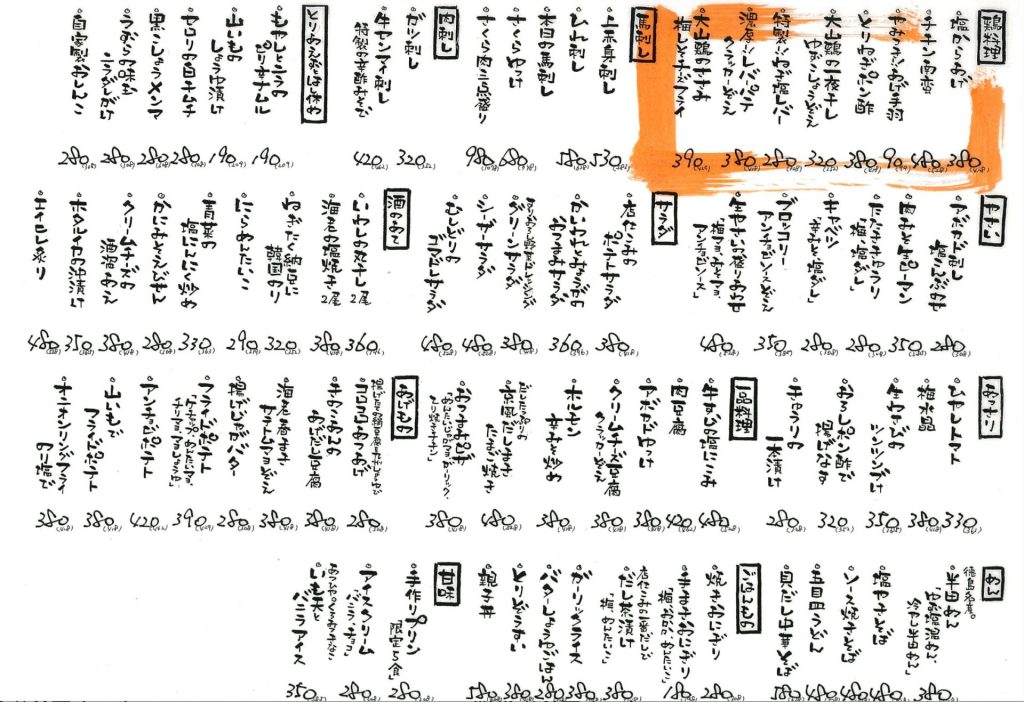 鶏料理
塩からあげ 380(418)
チキン南蛮 480(528)
やみつき!!おび手羽 90
とりわさポン酢 380(418)
大山鶏の一夜干し
ゆずこしょうぞえ 320(352)
特製!!ねぎ塩レバー 280(308)
濃厚!!レバーパテ
クラッカーぞえ 380(418)
大山鶏のササミ
梅しそチーズフライ 390(429)
馬刺し
上赤身刺し 530(583)
ヒレ刺し 580(638)
本日の馬刺し
さくらゆっけ 680(748)
さくら肉三点盛り 980
肉刺し
ガツ刺し 320(352)
牛センマイ刺し
特製の辛酢みそで 420(462)
とりあえずとはし休め
もやしとニラの
ピリ辛ナムル 190(209)
山いもの
しょうゆ漬け 190(209)
セロリの白キムチ 280(308)
黒こしょうメンマ 280(308)
うずらの味玉
ニラだれがけ 280(308)
自家製おしんこ 280(308)
やさい
アボカド刺し
塩こんぶのせ 280(308)
肉みそピーマン 350
たたききゅうり
「梅・塩だし」 280(308)
キャベツ
「辛みそ・塩だし」 280(308)
ブロッコリー
アンチョビソースぞえ 350
生やさい盛り合わせ
「梅マヨ・みそマヨ・
アンチョビソース」 480(528)
サラダ
店仕こみの
ポテトサラダ 380(418)
かいわれとみょうがの
うめサラダ 360(396)
グリーンサラダ 380(418)
シーザーサラダ 480(528)
むしどりの
ゴマだしサラダ 480(528)
酒のあて
いわしの丸干し 2尾 360(396)
海老の塩焼き 2尾 380(418)
やみつき納豆に
韓国のり 320(352)
にらめんたいこ 290
青菜の
塩にんにく炒め 330(363)
かにみそくんせい 280(308)
クリームチーズの
酒盗あえ 380(418)
ホタルイカの沖漬け 350
エイヒレ炙り 480(528)
おつまり
ひやしトマト 330(363)
梅水晶 380(418)
生ザーサイの
ツンツンづけ 350
おろしポン酢で
揚げなす 320(352)
きゅうりの
一本漬け 280(308)
一品料理
牛すじの塩にこみ 480(528)
肉豆腐 420(462)
アボカドゆっけ 380(418)
クリームチーズ豆腐
クラッカーぞえ 380(418)
ホルモン
辛みそ炒め 380(418)
だしたっぷりの
京風だしまき
たまご焼き 480(528)
380(418)
あげもの
280(308)
手作りざるの
あげだし豆腐 380(418)
海老春巻き
タルタルマヨぞえ 380(418)
揚げじゃがバター 280(308)
フライドポテト 390(429)
アンチョビポテト 420(462)
山いもで
フライドポテト 380(418)
オニオンリングフライ
のり塩で 380(418)
めん
徳島名産。
半田めん
冷やし半田めん」 380
塩やきそば 480
ソース焼きそば 480
五目皿うどん 480
貝だし中華そば 580
ごはんもの
焼きおにぎり 280
手まきおにぎり 180
だし茶漬け
「梅・めんたいこ」 380
ガーリックライス 380
バターしょうゆごはん 280
とりぞうすい 380
親子丼 580
甘味
手作りプリン
限定5食 280
アイスクリーム
「バニラ・チョコ」 280
いも天と
バニラアイス 350